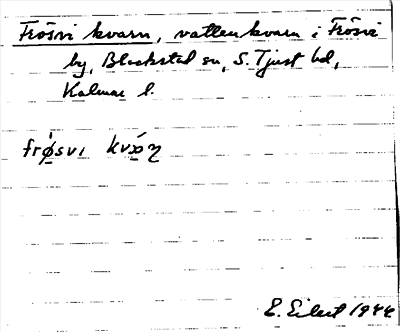 Frösvi kvarn, vattenkvarn i Frösvi
by, Blackstad sn, S. Tjust hd,
Kalmar l.
frø̀svi kvɔ́ɳ
E. Eilert 1944